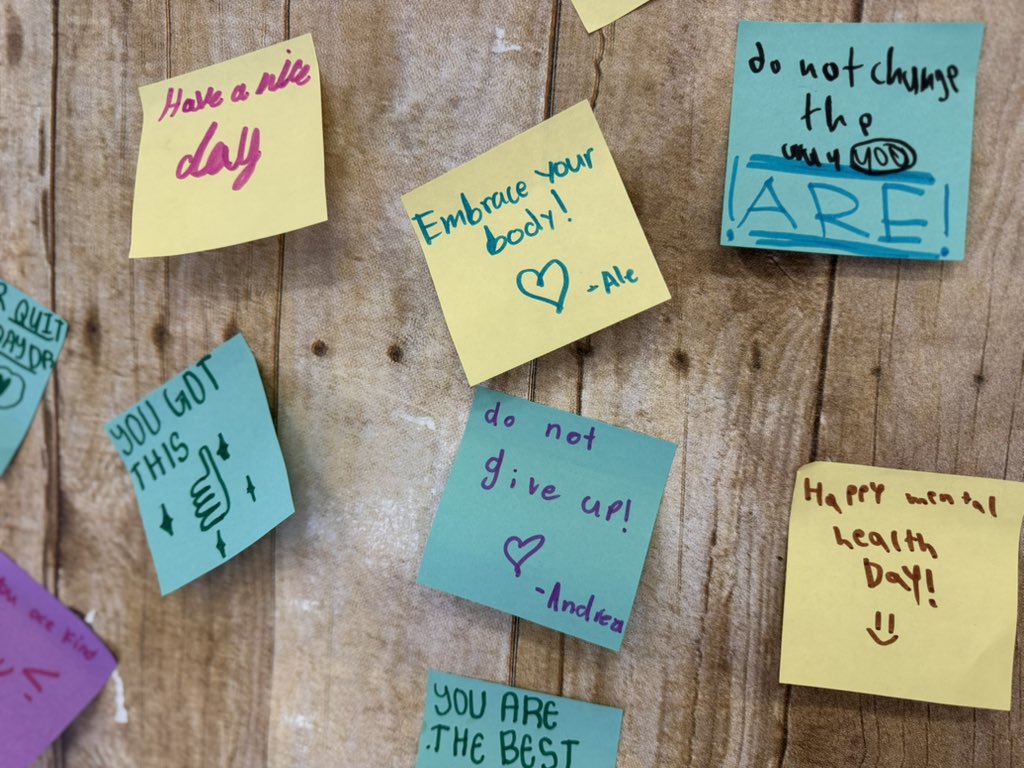 Have a nice
day
Embrace your
body!
-Ale
do not change
the
way YOU
!ARE!
QUIT
YOU GOT
THIS
do not
give up!
-Andrea
Happy mental
health
DAY!
you are kind
YOU ARE
THE BEST